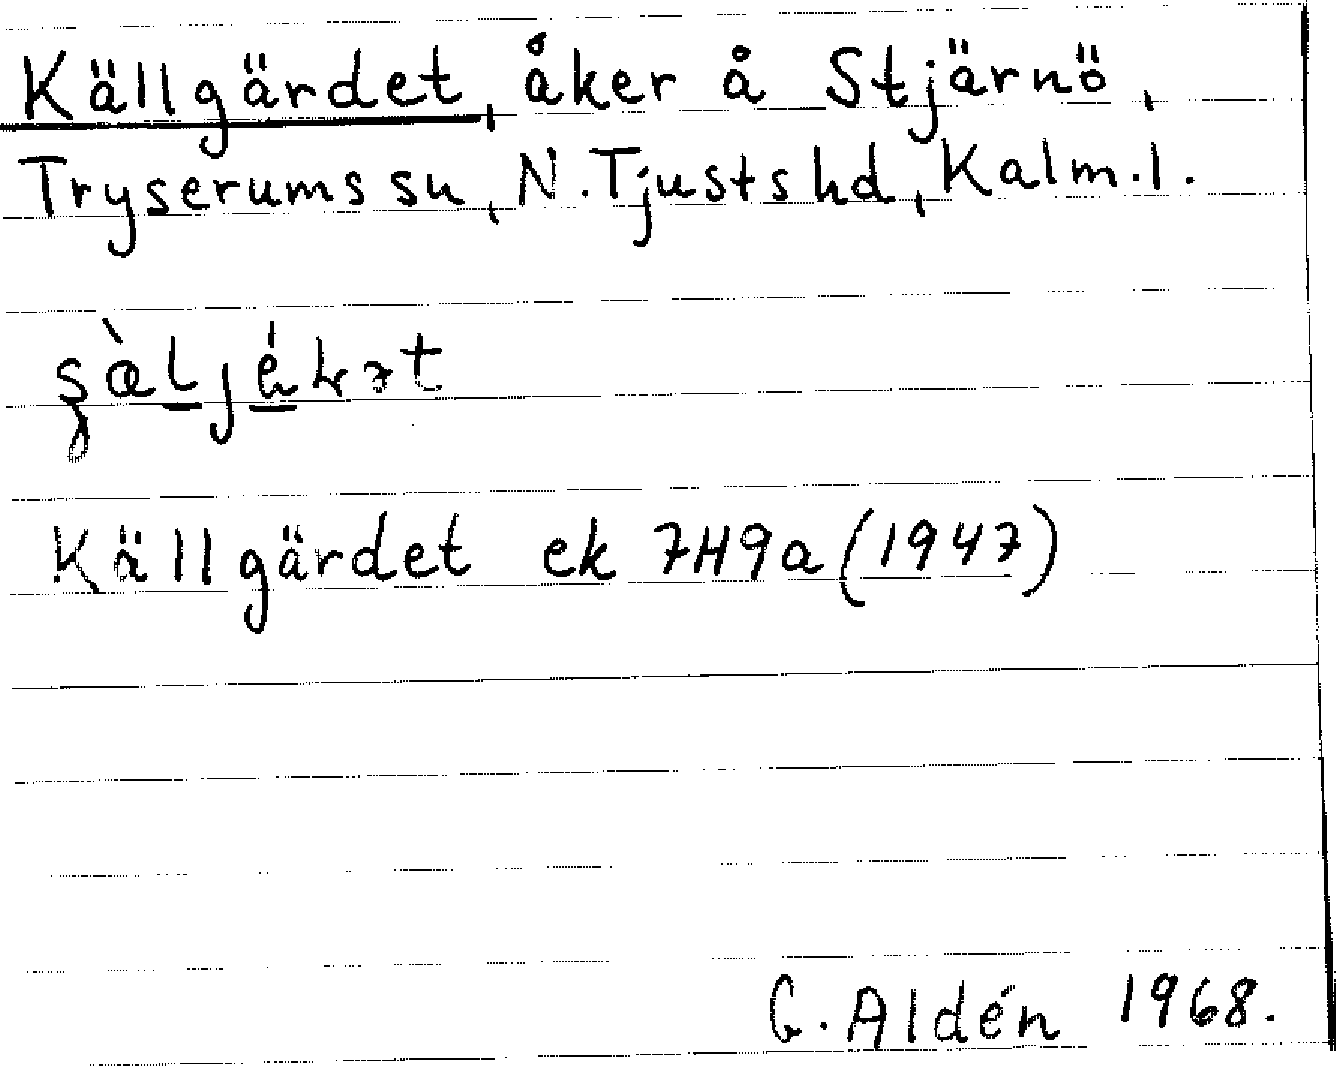 Källgärdet, åker å Stjärnö,
Tryserums sn, N. Tjusts hd, Kalm. l.
Källgärdet ek 7H9a (1947)
G. Aldén 1968.